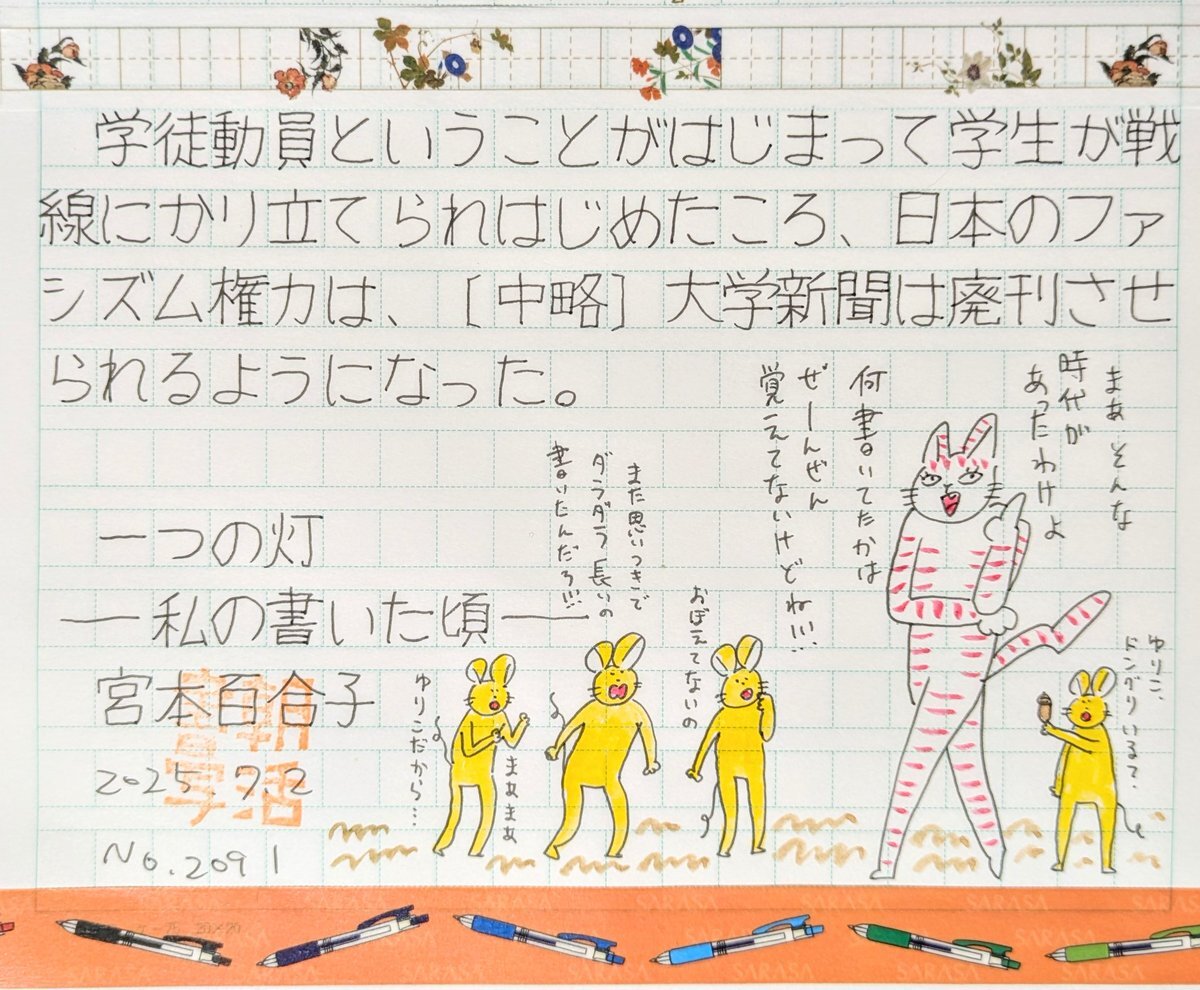 学徒動員ということがはじまって学生が戦
線にかり立てられはじめたころ、日本のファ
シズム権力は、〔中略〕大学新聞は廃刊させ
られるようになった。
一つの灯
―私の書いた頃―
宮本百合子
2025.7.2
No.2091
まぁ、そんな
時代が
あったわけよ
何書いてたかは
ぜーんぜん
覚えてないけどね!!!
また思いつきで
ダラダラ長いの
書いたんだろ!!!
おぼえてないの
ゆりこだから…
まあまあ
ゆりこ、
ドングリいるて、
SARASA
SARASA
SARASA
SARASA
SARASA